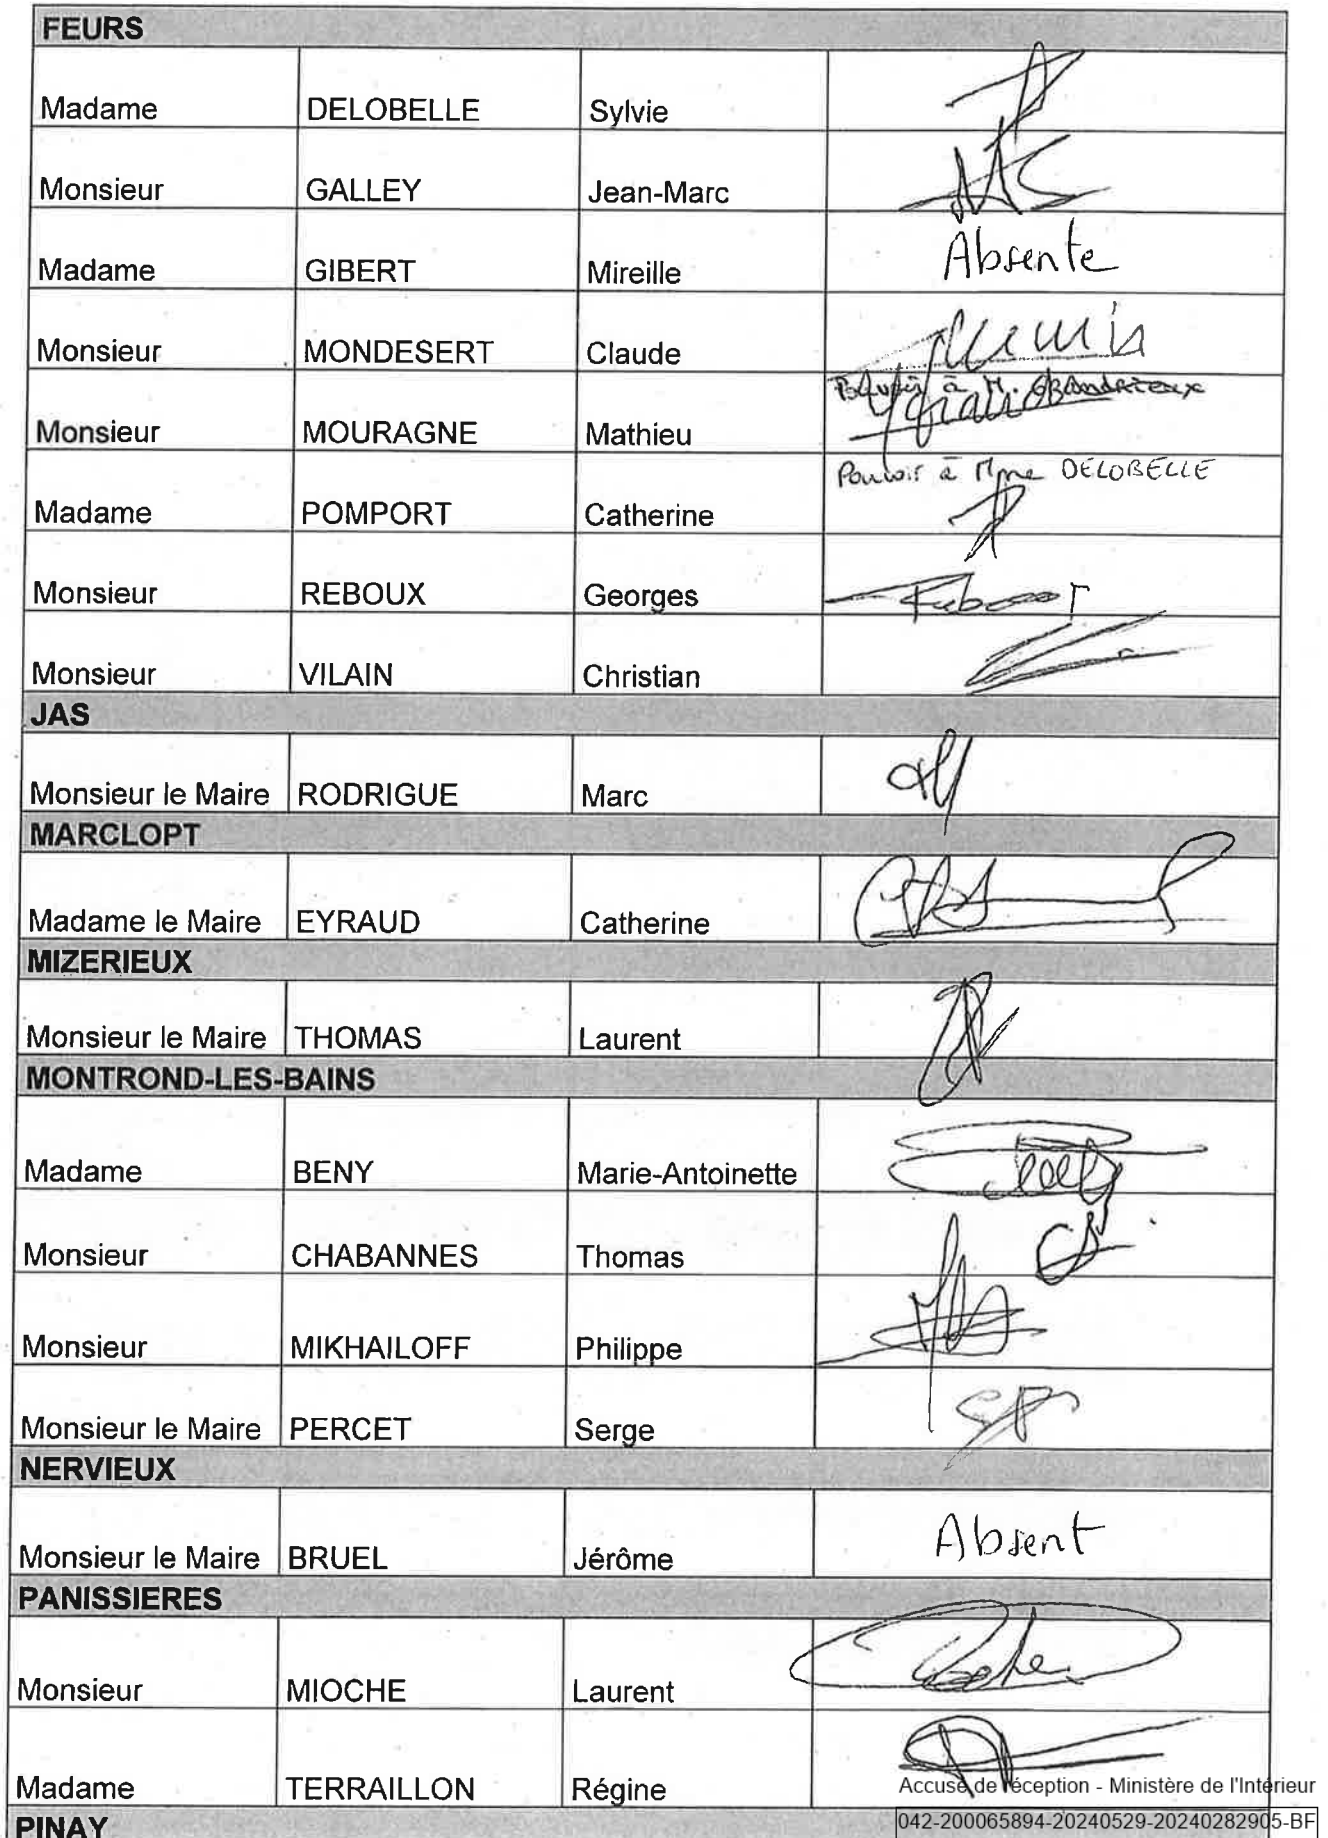 FEURS
Madame DELOBELLE Sylvie
Monsieur GALLEY Jean-Marc
Madame GIBERT Mireille Absente
Monsieur MONDESERT Claude
Pouvoir à M. GRANDRIEUX
Monsieur MOURAGNE Mathieu
Pouvoir à Mme DELOBELLE
Madame POMPORT Catherine
Monsieur REBOUX Georges
Monsieur VILAIN Christian
JAS
Monsieur le Maire RODRIGUE Marc
MARCLOPT
Madame le Maire EYRAUD Catherine
MIZERIEUX
Monsieur le Maire THOMAS Laurent
MONTROND-LES-BAINS
Madame BENY Marie-Antoinette
Monsieur CHABANNES Thomas
Monsieur MIKHAILOFF Philippe
Monsieur le Maire PERCET Serge
NERVIEUX
Monsieur le Maire BRUEL Jérôme Absent
PANISSIERES
Monsieur MIOCHE Laurent
Madame TERRAILLON Régine
Accusé de réception - Ministère de l'Intérieur
PINAY
042-200065894-20240529-20240282905-BF